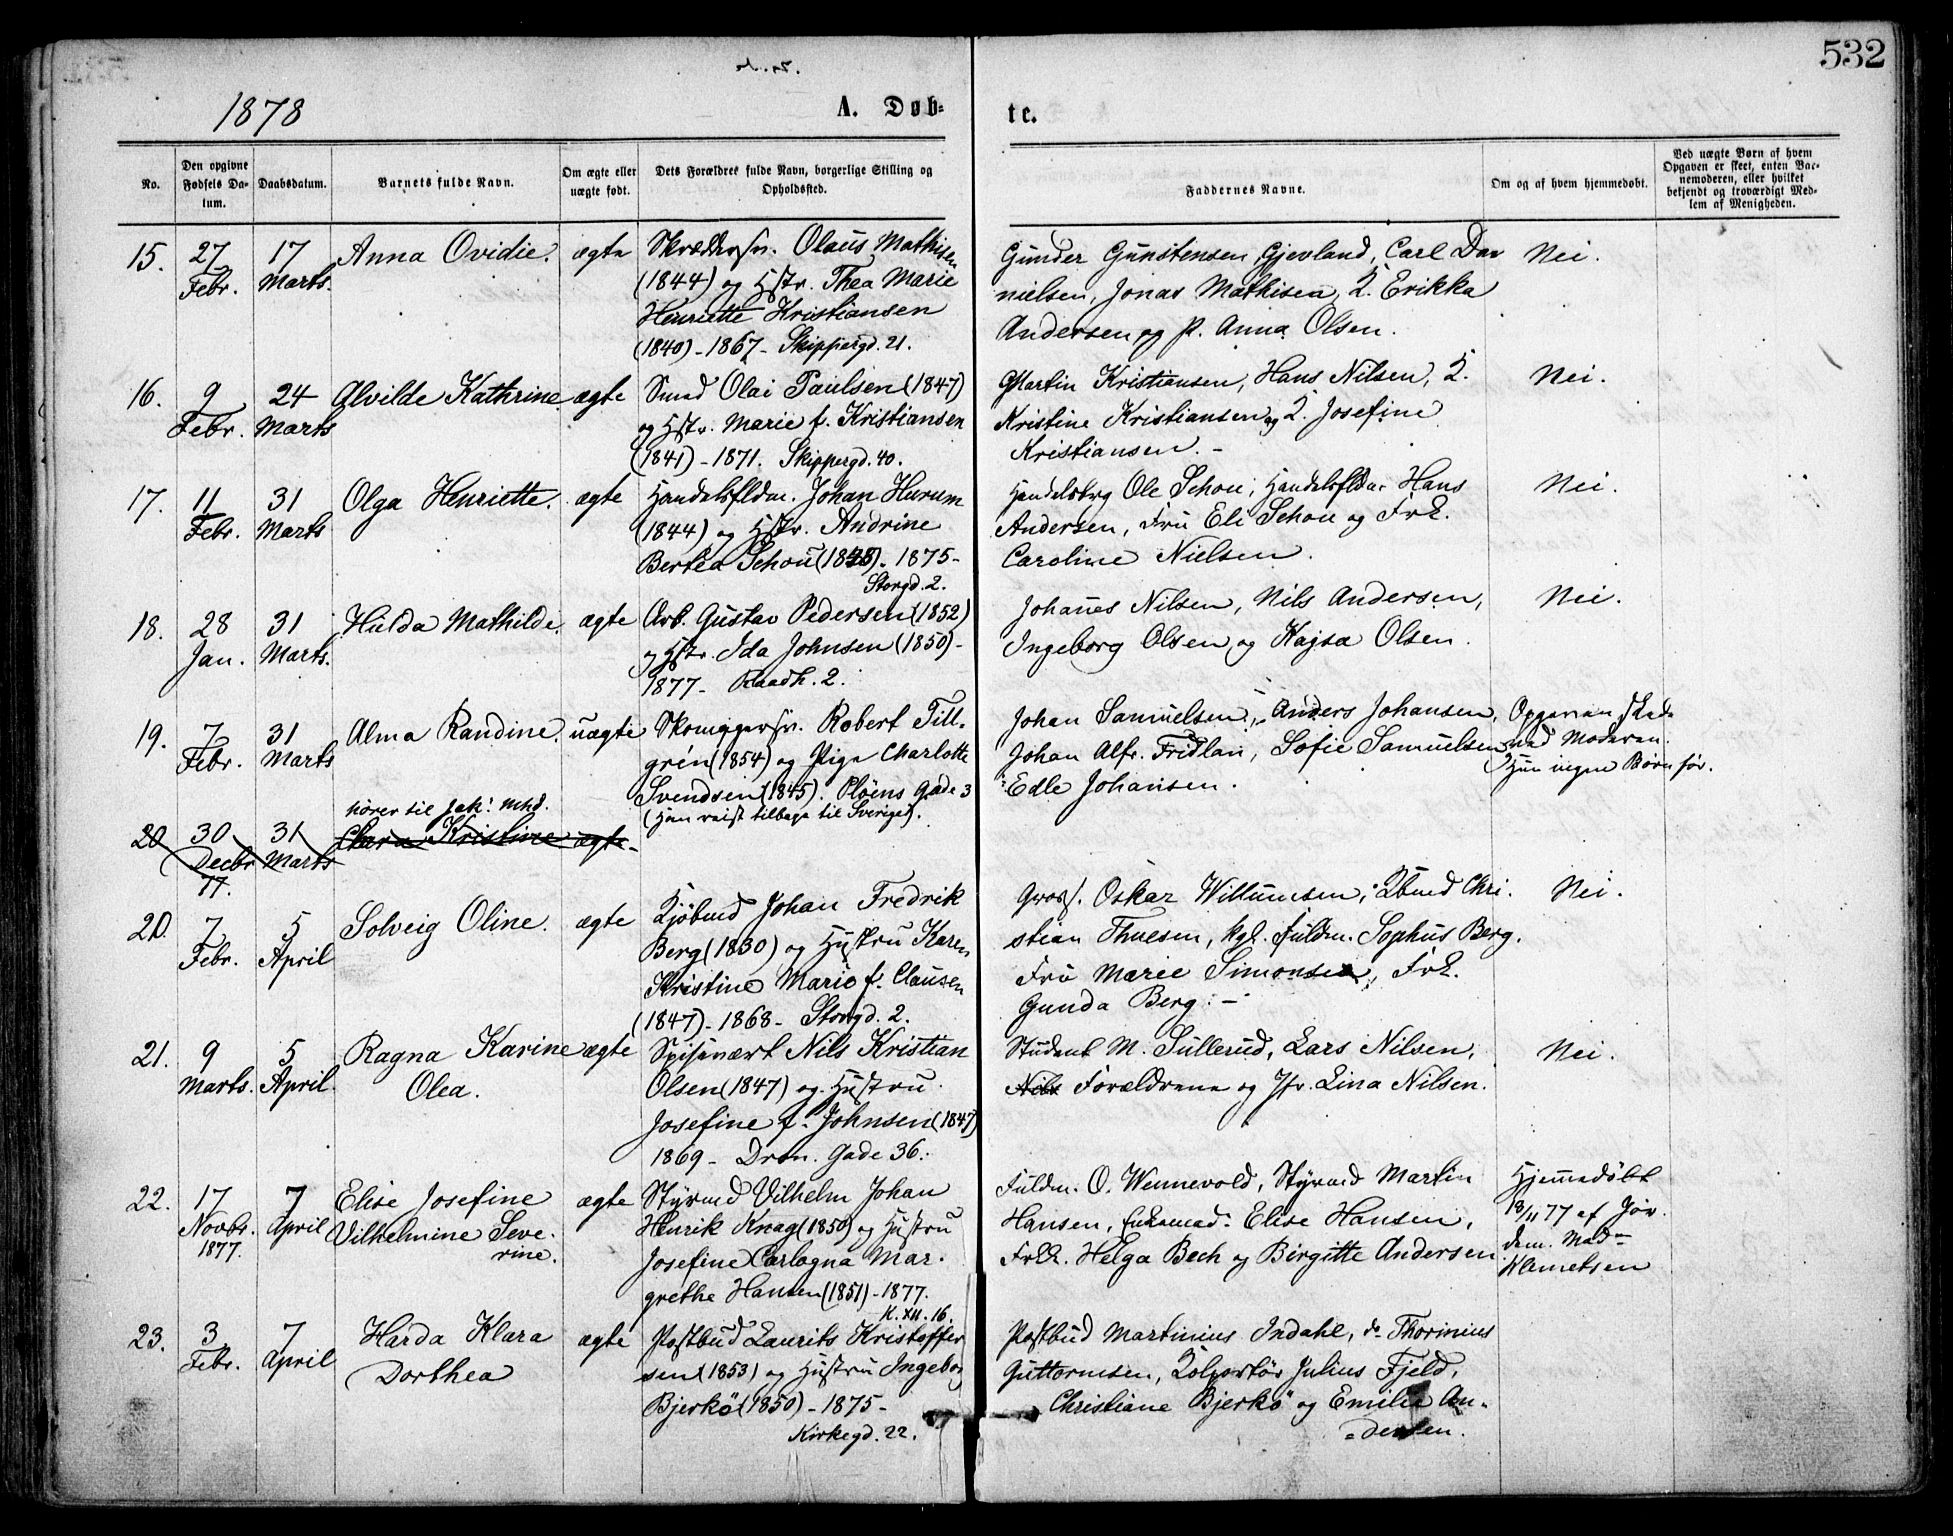 532
1878
A. Døb-
te.
No.
Den opgivne Fødsels Da-tum.
Daabsdatum.
Barnets fulde Navn.
Om ægte eller uægte født.
Dets Forældres fulde Navn, borgerlige Stilling og Opholdssted.
Faddernes Navne.
Om og af hvem hjemmedøbt.
Ved uægte Børn af hvem Opgaven er skeet, enten Bar-nemoderen, eller hvilket bekjendt og troværdigt Med-lem af Menigheden.
15. 27 Febr. 17 Marts. Anna Ovidie. ægte
Olaus Mathisen
(1844) og Hstr. Thea Marie
Henriette Kristiansen
(1840) - 1867 - Skippergd. 21.
Gunder Gunstensen Gjevland, Carl Da-
nielsen, Jonas Mathisen, K. Erikka
Andersen og P. Anna Olsen.
Nei.
16. 9 Febr. 24 Marts Alvilde Kathrine ægte
Smed Olai Paulsen (1847)
og Hstr. Marie f. Kristiansen
(1841) - 1871. Skippergd. 40.
Martin Kristiansen, Hans Nilsen, K.
Kristine Kristiansen og K. Josefine
Kristiansen. -
Nei.
17. 11 Febr. 31 Marts Olga Henriette. ægte
Handelsfldm. Johan Hurum
(1844) og Hstr. Andrine
Bertea Schou - 1875 -
Storgd. 2.
Handelsbrg Ole Schou, Handelsfldm. Hans
Andersen, Fru Eli Schou og Frk.
Caroline Nielsen.
Nei.
18. 28 Jan. 31 Marts. Hulda Mathilde. ægte
Arb. Gustav Pedersen (1852)
og Hstr. Ida Johnsen (1850) -
1877 - Raadh. 2.
Johanes Nilsen, Nils Andersen,
Ingeborg Olsen og Kajsa Olsen.
Nei.
19. 7 Febr. 31 Marts Alma Randine. uægte
Skomagersv. Robert Till-
grén (1854) og Pige Charlotte
Svendsen (1845). Pløens Gade 3
(Han reist tilbage til Sverige).
Johan Samuelsen, Anders Johansen,
Johan Alfr. Fridlan, Sofie Samuelsen
Edle Johansen.
Opgaven skede
ved Moderen.
Hun ingen Børn før.
hører til Jak. Mhd.
20 30 Decbr 77. 31 Marts Clara Kristine ægte
20. 7 Febr. 5 April Solveig Oline. ægte
Kjøbmd Johan Fredrik
Berg (1830) og Hustru Karen
Kristine Marie f. Clausen
(1847) - 1868 - Storgd. 2.
Gross. Oskar Willumsen, Kbmd Chri-
stian Thuesen, kgl. fuldm. Sophus Berg.
Fru Marie Simonsen, Frk.
Gunda Berg. -
Nei.
21. 9 Marts. 5 April. Ragna Karine ægte
Olea.
Spisevært Nils Kristian
Olsen (1847) og Hustru
Josefine f. Johnsen (1847)
1869 - Dron. Gade 36.
Student M. Sullerud, Lars Nilsen,
Nils Forældrene og Jfr. Lina Nilsen.
Nei.
22. 17 Novbr. 1877. 7 April Elise Josefine ægte
Vilhelmine Seve-
rine.
Styrmd Vilhelm Johan
Henrik Knag (1850) og Hustru
Josefine Carlogna Mar-
grethe Hansen (1851) - 1877.
K. XII. 16.
Fuldm. O. Wennevold, Styrmd Martin
Hansen, Enkemad. Elise Hansen,
Frk. Helga Bech og Birgitte Andersen
Hjemmedøbt
18/11 77 af Jor-
dem. Mad-
Klemetsen
23. 3 Febr. 7 April Harda Klara ægte
Dorthea
Postbud Laurits Kristoffer-
sen (1853) og Hustru Ingeborg
Bjerkö (1850) - 1875 -
Kirkegd. 22.
Postbud Martinius Indahl, do Thorinius
Guttormsen, Kolportör Julius Fjeld,
Christiane Bjerkö og Emilie An-
dersen.